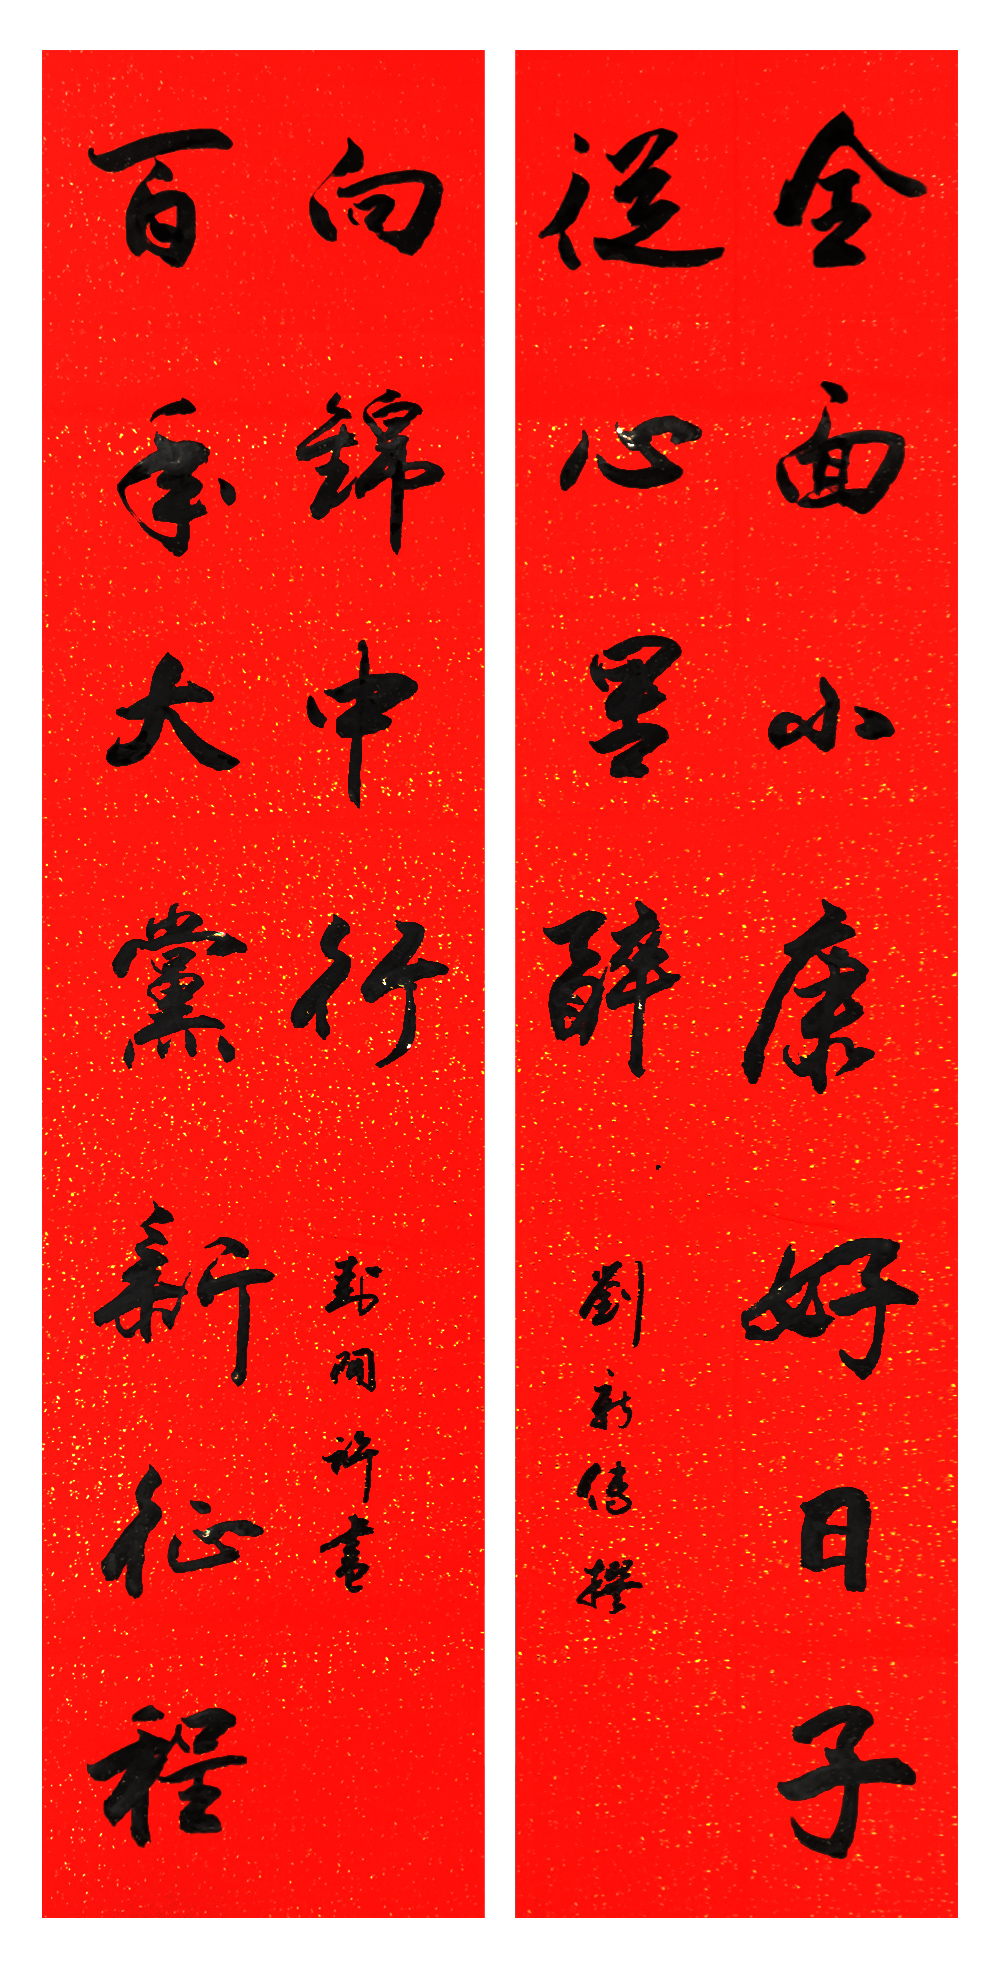 全面小康好日子
從心里醉
劉新傳撰
百年大黨新征程
向錦中行
封許書